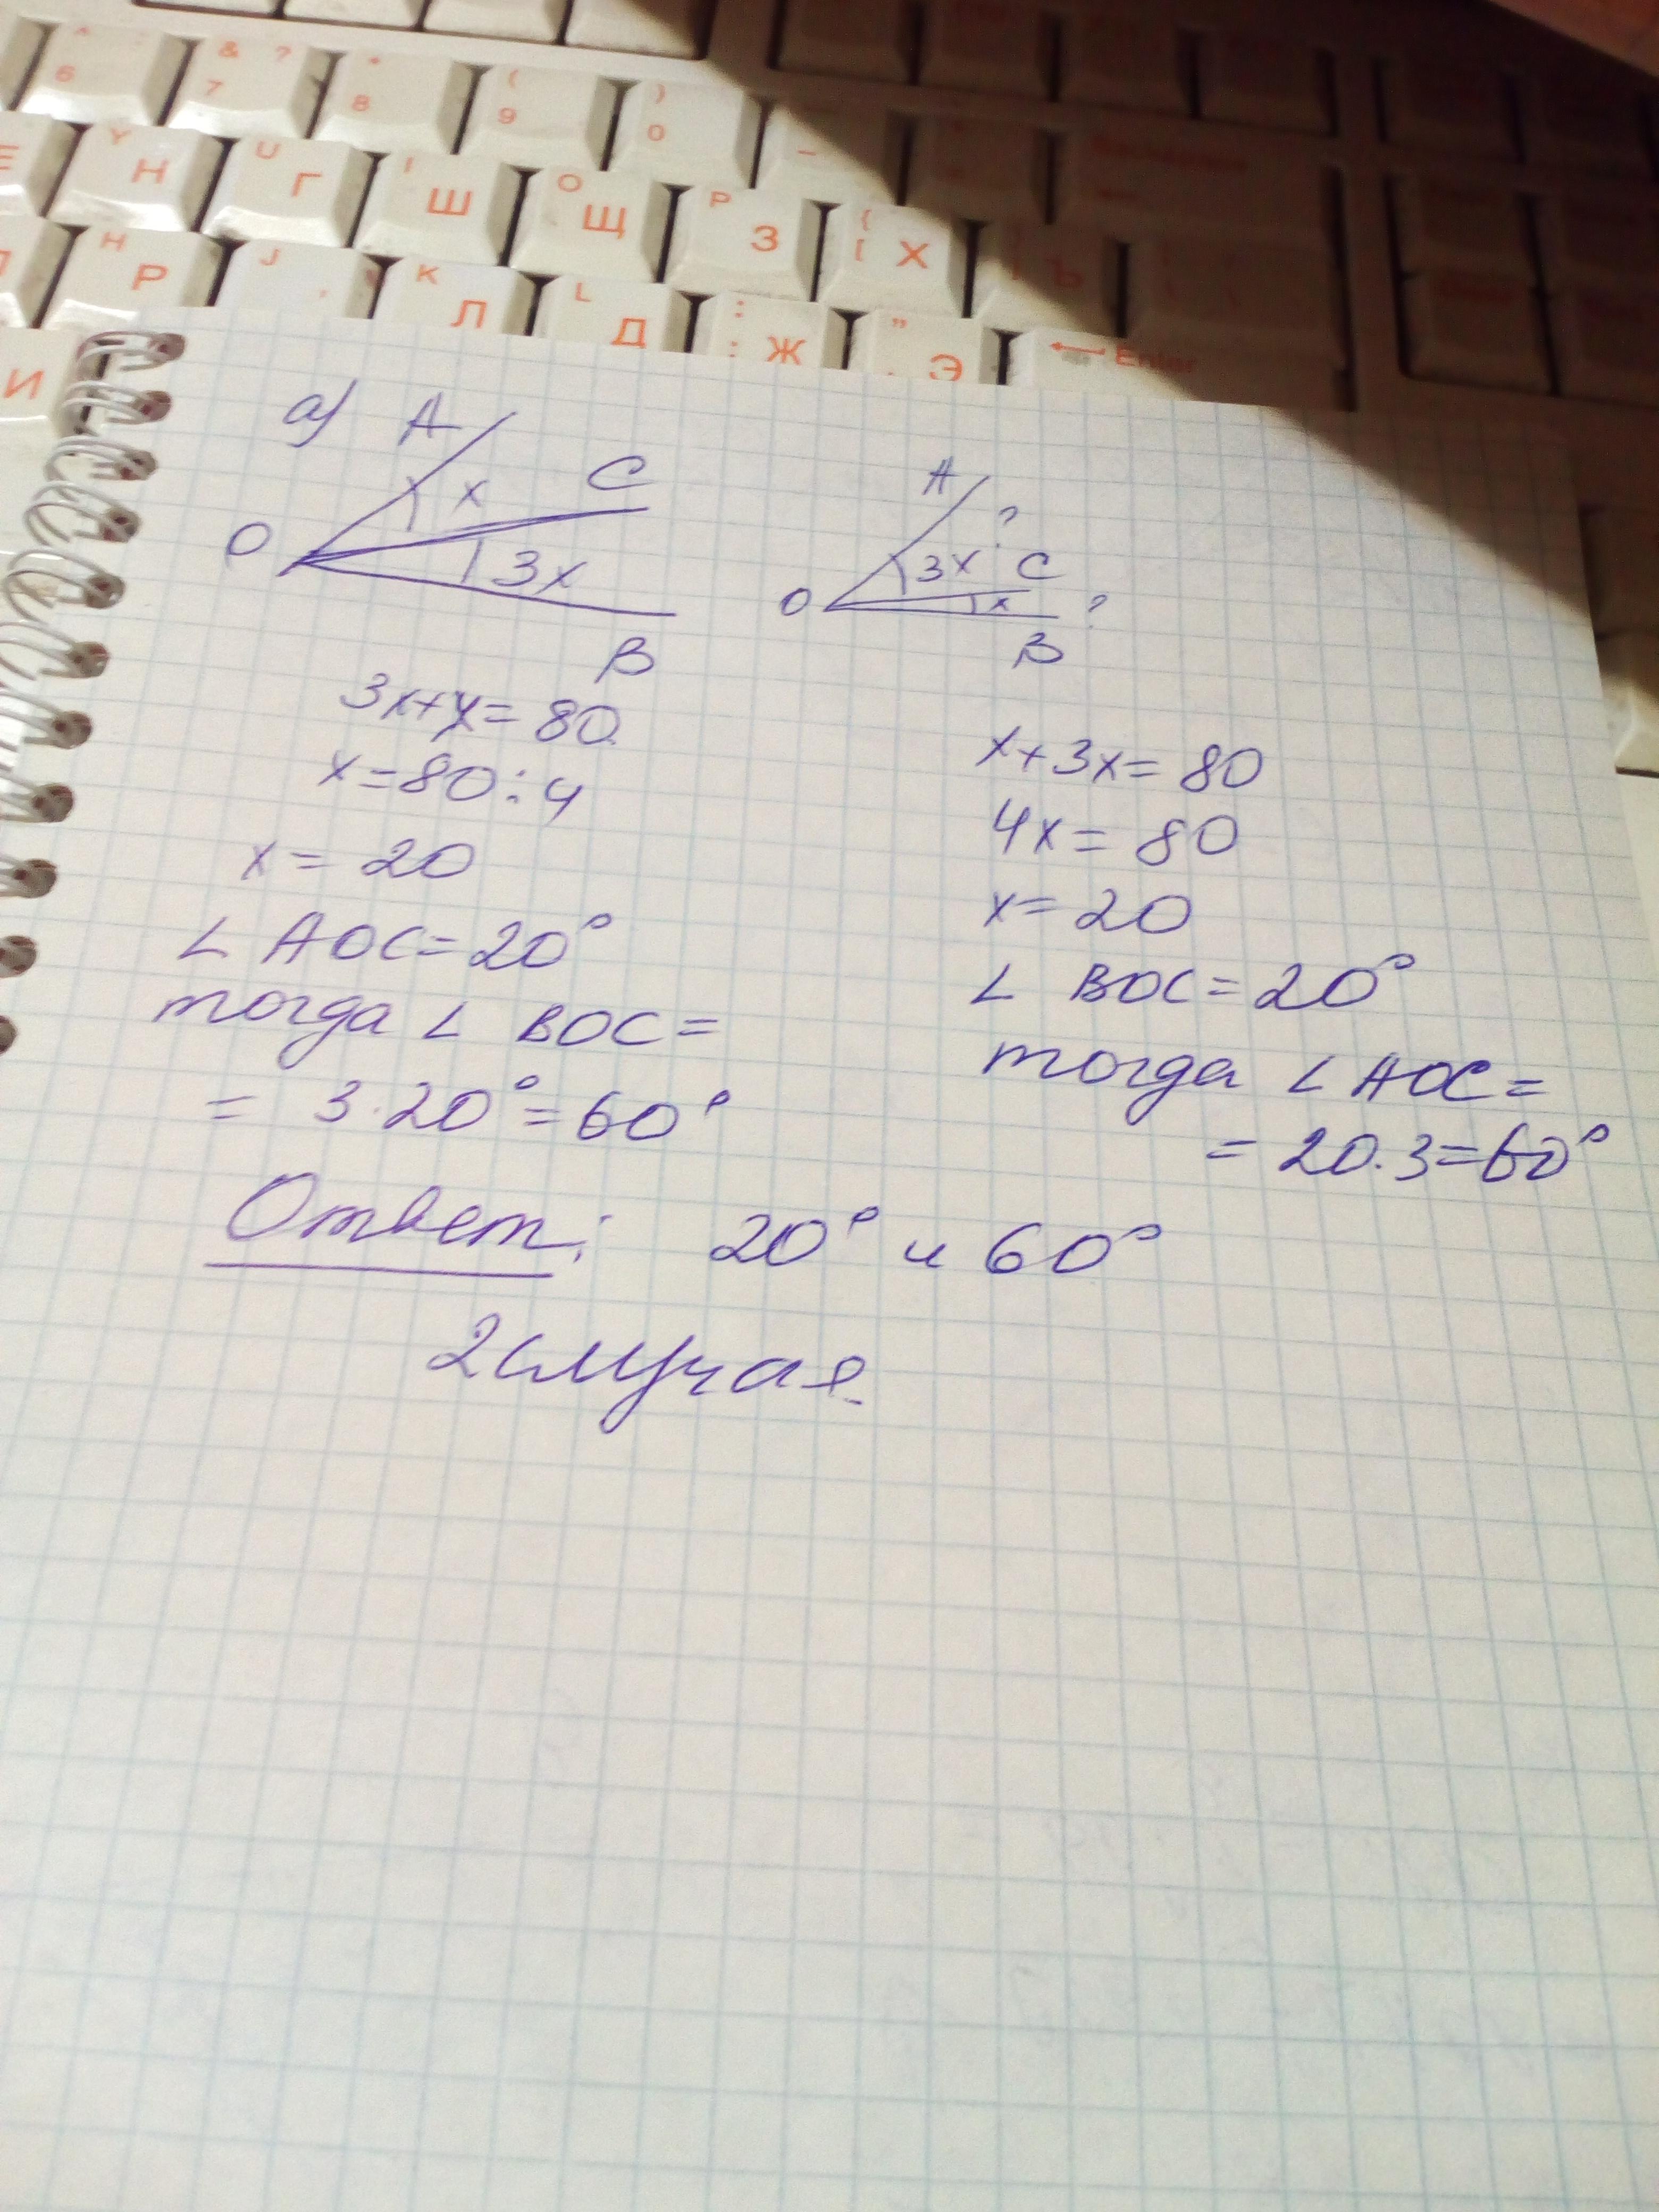 ^ : 6
& ? 7
* 8
( 9
) 0
–
E
Y Н
U Г
I Ш
O Щ
P З
{ [ Х
Ъ
H Р
J
K Л
L Д
: ; Ж
" Э
← Enter
И
а)
A
x
C
O
3x
B
3x+x=80
x=80:4
x=20
∠ AOC=20°
тогда ∠ BOC=
= 3·20°=60°
A
?
3x
C
O
x
?
B
x+3x=80
4x=80
x=20
∠ BOC=20°
тогда ∠ AOC=
=20·3=60°
Ответ: 20° и 60°
2 случая.